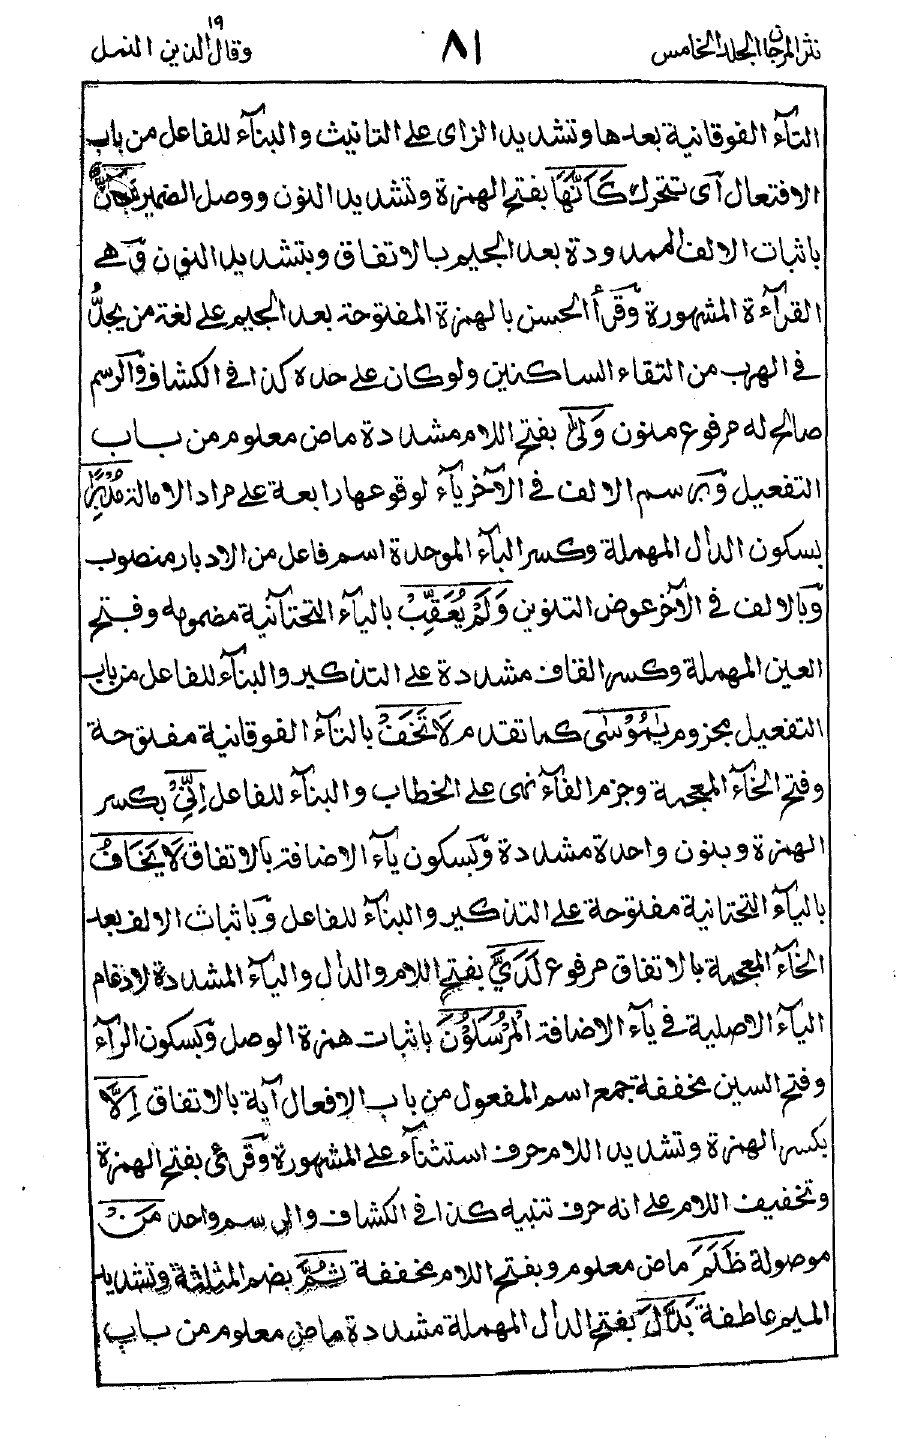 نثر المرجان الجلد الخامس ٨١ وقال الذين ١٩ النمل
التآء الفوقانية بعدها وتشديد الزاى على التانيث والبنآء للفاعل من باب
الافتعال آى تتحرك كَاَنَّهَا بفتح الهمزة وتشديد النون ووصل الضمير جَآنٌّ
باثبات الالف الممدودة بعد الجيم بالاتفاق وبتشديد النون وهى
القرآءة المشهورة وقرأ الحسن بالهمزة المفتوحة بعد الجيم على لغة من يجدُّ
فى الهرب من التقاء الساكنين ولو كان على حده كذا فى الكشاف والرسم
صالح له مرفوع منون وَلّٰى بفتح اللام مشددة ماض معلوم من باب
التفعيل وبرسم الالف فى الآخر يآء لوقوعها رابعة على مراد الامالة مُدْبِرًا
بسكون الدال المهملة وكسر البآء الموحدة اسم فاعل من الادبار منصوب
وبالالف فى الآخر عوض التنوين وَلَمْ يُعَقِّبْ باليآء التحتانية مضمومه وفتح
العين المهملة وكسر القاف مشددة على التذكير والبنآء للفاعل من باب
التفعيل مجزوم يٰمُوْسٰى كما تقدم لَا تَخَفْ بالتآء الفوقانية مفتوحة
وفتح الخآء المعجمة وجزم الفآء نهى على الخطاب والبنآء للفاعل اِنِّىْ بكسر
الهمزة وبنون واحدة مشددة وبسكون يآء الاضافة بالاتفاق لَا يَخَافُ
باليآء التحتانية مفتوحة على التذكير والبنآء للفاعل وباثبات الالف بعد
الخآء المعجمة بالاتفاق مرفوع لَدَىَّ بفتح اللام والدال واليآء المشددة لادغام
اليآء الاصلية فى يآء الاضافة الْمُرْسَلُوْنَ باثبات همزة الوصل وبسكون الرآء
وفتح السين مخففة جمع اسم المفعول من باب الافعال آية بالاتفاق اِلَّا
بكسر الهمزة وتشديد اللام حرف استثنآء على المشهورة وقرئ بفتح الهمزة
وتخفيف اللام على انه حرف تنبيه كذا فى الكشاف والرسم واحد مَنْ
موصولة ظَلَمَ ماض معلوم وبفتح اللام مخففة ثُمَّ بضم المثلثة وتشديد
الميم عاطفة بَدَّلَ بفتح الدال المهملة مشددة ماض معلوم من باب